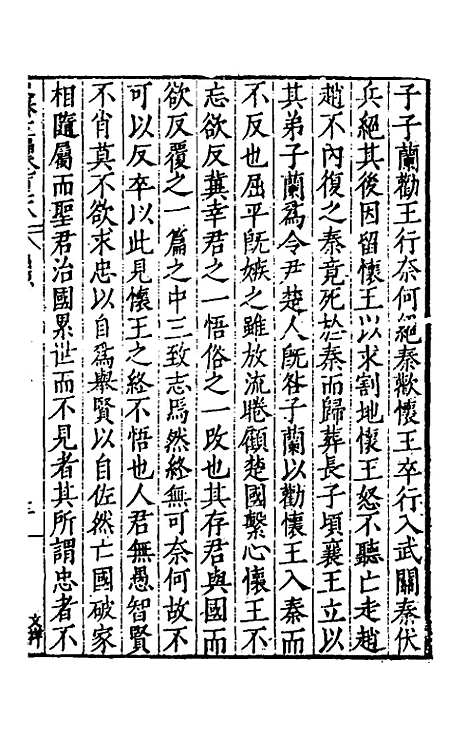 子子蘭勸王行奈何絕秦歡懷王卒行入武關秦伏
兵絕其後因留懷王以求割地懷王怒不聽亡走趙
趙不內復之秦竟死於秦而歸葬長子頃襄王立以
其弟子蘭爲令尹楚人旣咎子蘭以勸懷王入秦而
不反也屈平旣嫉之雖放流睠顧楚國繫心懷王不
忘欲反冀幸君之一悟俗之一改也其存君與國而
欲反覆之一篇之中三致志焉然終無可奈何故不
可以反卒以此見懷王之終不悟也人君無愚智賢
不肖莫不欲求忠以自爲舉賢以自佐然亡國破家
相隨屬而聖君治國累世而不見者其所謂忠者不